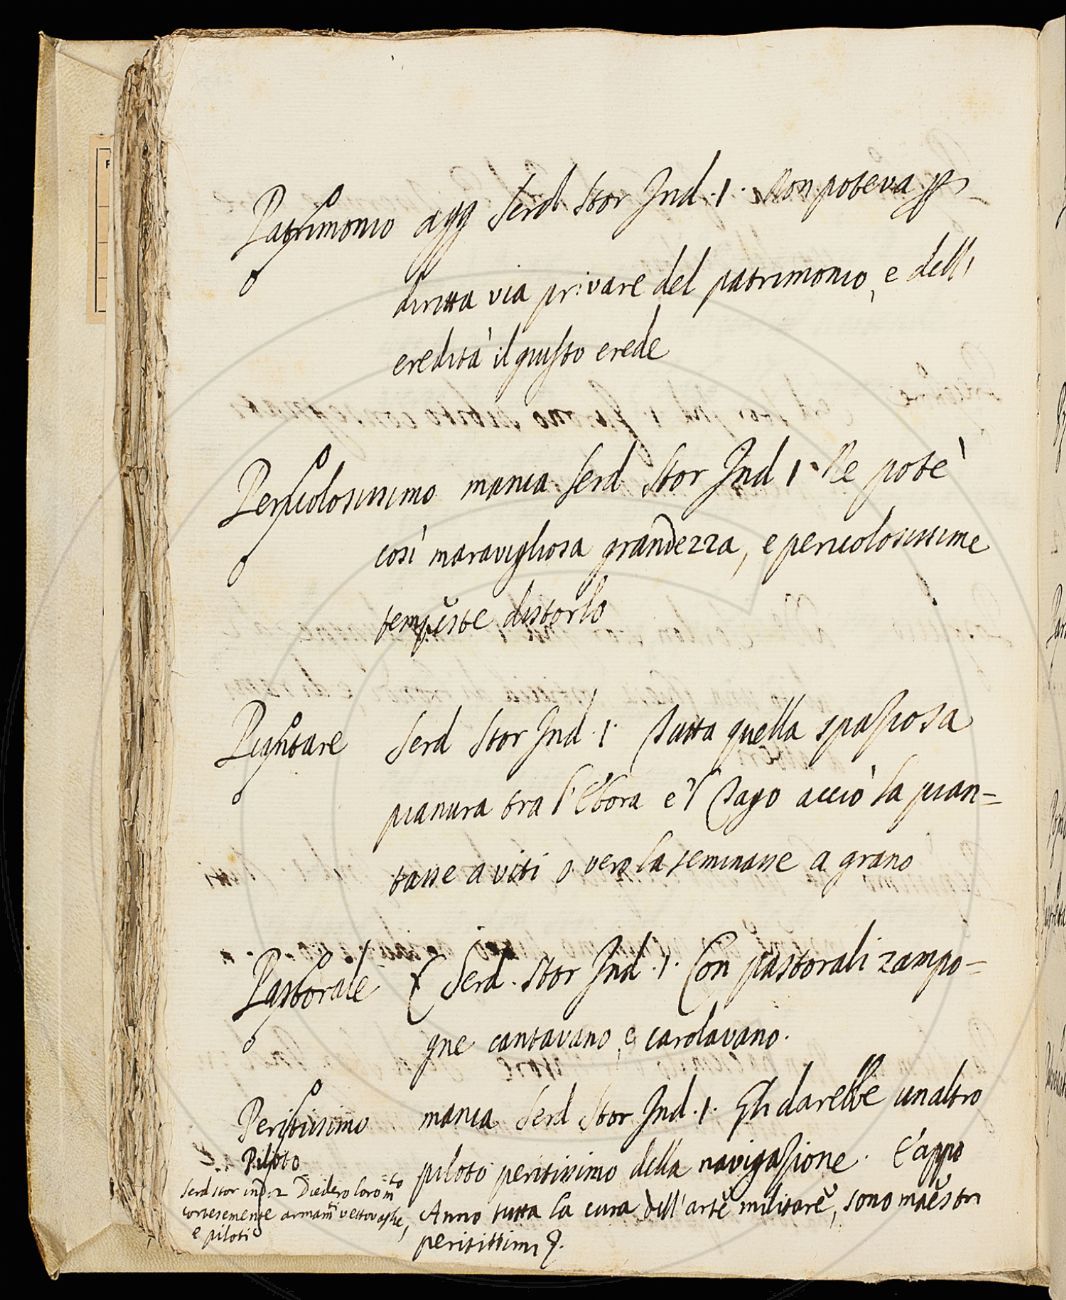 Patrimonio agg Serd Stor Ind. 1. Non poteva p
diritta via privare del patrimonio, e dell'
eredità il giusto erede
Pericolosissimo manca Serd Stor Ind 1. Ne potè
così maravigliosa grandezza, e pericolosissime
tempeste distorlo
Piantare Serd Stor Ind. 1. Tutta quella spaziosa
pianura tra l'Ebora e'l Tago acciò la pian=
tasse a viti o vero la seminasse a grano
Pastorale Serd. Stor Ind. 1. Con pastorali zampo=
gne cantavano, e carolavano.
Peritissimo manca Serd Stor Ind. 1. Gli darebbe un altro
piloto peritissimo della navigazione. E appo
Anno tutta la cura dell'arte militare, sono maestri
peritissimi
Piloto
Serd stor ind: 2 Diedero loro
cortesemente armamti vettovaglie,
e piloti